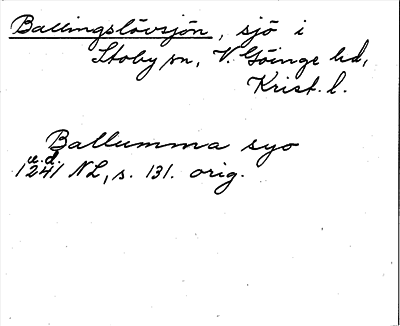 Ballingslövsjön, sjö i
Stoby sn, V. Göinge hd,
Krist. l.
Ballumma syo
u.d.
1241 NL, s. 131. orig.